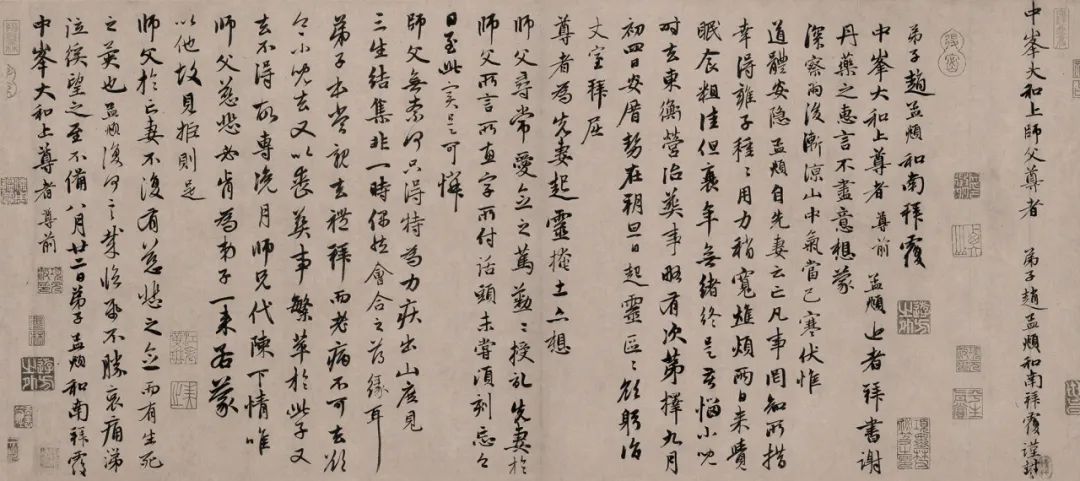 中峯大和上師父尊者 弟子趙孟頫和南拜覆謹封
弟子趙孟頫和南拜覆
中峯大和上尊者尊前 孟頫近者拜書謝
丹藥之惠言不盡意想蒙
深察雨後漸涼山中氣當已寒伏惟
道體安隱孟頫自先妻云亡凡事罔知所措
幸得雍子種種用力稍寬焦煩兩日來覺
眠食粗佳但衰年無緒終是苦惱小兒
時去東衡營治葬事略有次第擇九月
初四日安厝勢在朔旦日起靈區區欲躬詣
丈室拜屈
尊者為先妻起靈掩土亦想
師父尋常愛念之篤勤勤授記先妻於
師父所言所直字所付話頭未嘗頃刻忘今
日至此實是可憐
師父無柰何只得特為力疾出山庶見
三生結集非一時偶然會合之薄緣耳
弟子本當親去禮拜而老病不可去欲
令小兒去又以喪葬事繁萃於此子又
去不得所專浼月師兄代陳下情唯
師父慈悲必肯為弟子一來若蒙
以他故見拒則是
師父於亡妻不復有慈悲之念而有生死
之異也孟頫復何言哉臨紙不勝哀痛涕
泣徯望之至不備八月廿二日弟子孟頫和南拜覆
中峯大和上尊者尊前